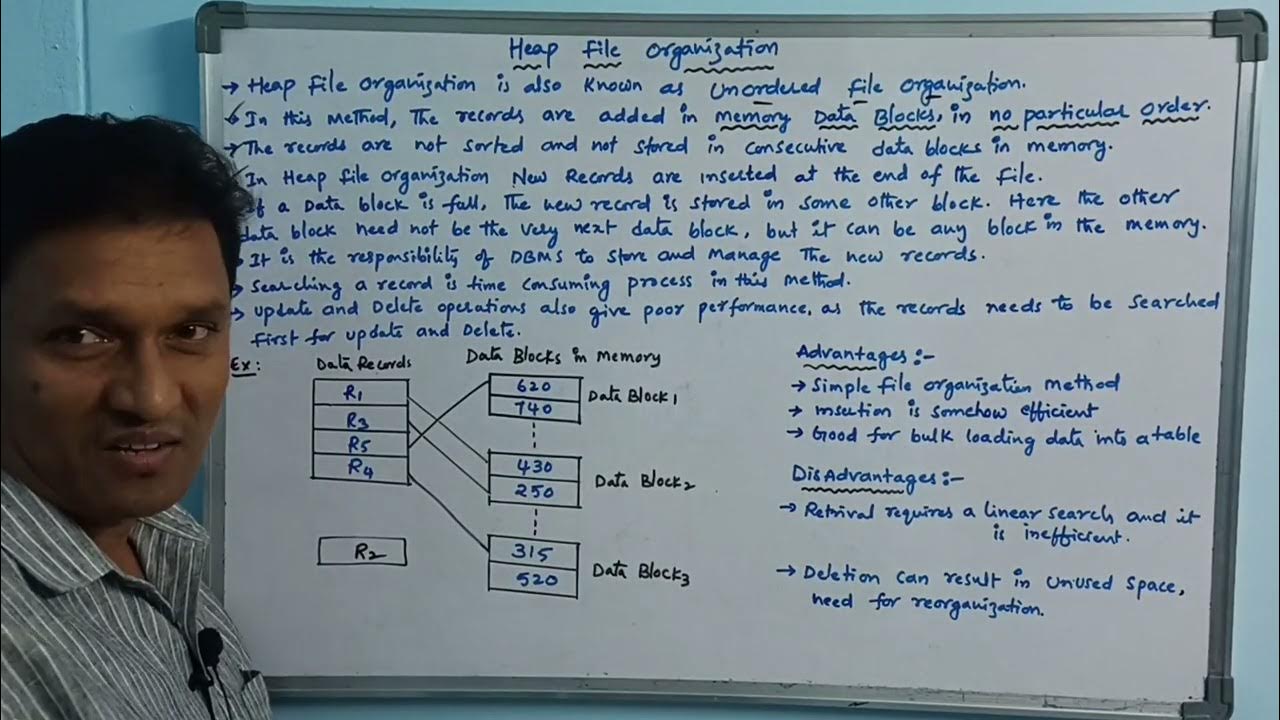 Heap File Organization
→ Heap File Organization is also Known as Unordered file organization.
In this Method, The records are added in memory Data Blocks, in no particular order.
→ The records are not sorted and not stored in consecutive data blocks in memory.
In Heap file organization New Records are inserted at the end of the File.
If a Data block is full, The new record is stored in some other block. Here the other
data block need not be the very next data block, but it can be any block in the memory.
It is the responsibility of DBMS to store and Manage The new records.
→ Searching a record is time consuming process in this method.
→ Update and Delete operations also give poor performance, as the records needs to be searched
First for update and Delete.
Ex:
Data Records
R1
R3
R5
R4
R2
Data Blocks in Memory
620
740
Data Block1
430
250
Data Block2
315
520
Data Block3
Advantages:-
→ Simple file organization method
→ insertion is somehow efficient
→ Good for bulk loading data into a table
DisAdvantages:-
→ Retrival requires a linear search, and it
is inefficient.
→ Deletion can result in unused space,
need for reorganization.